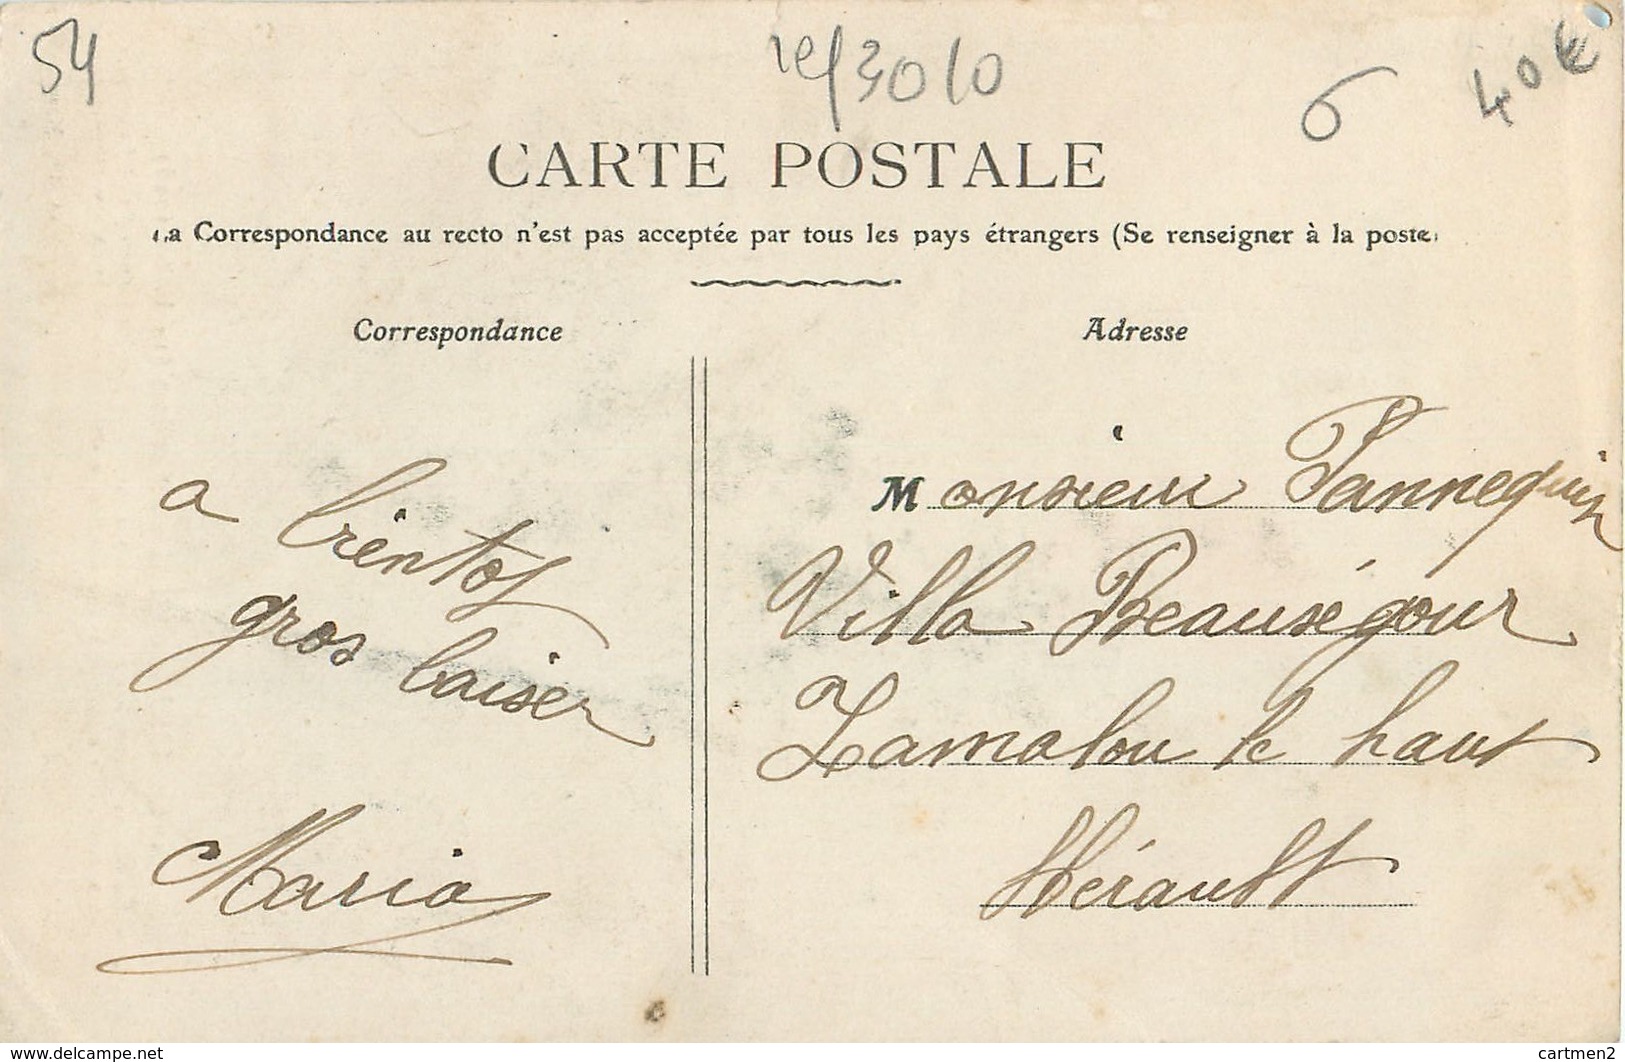 54
40€
6
CARTE POSTALE
La Correspondance au recto n'est pas acceptée par tous les pays étrangers (Se renseigner à la poste)
Correspondance
a bientot
gros baiser
Maria
Adresse
Monsieur Pannequin
Villa Beauségour
Lamalou le haut
Hérault
www.delcampe.net
cartmen2